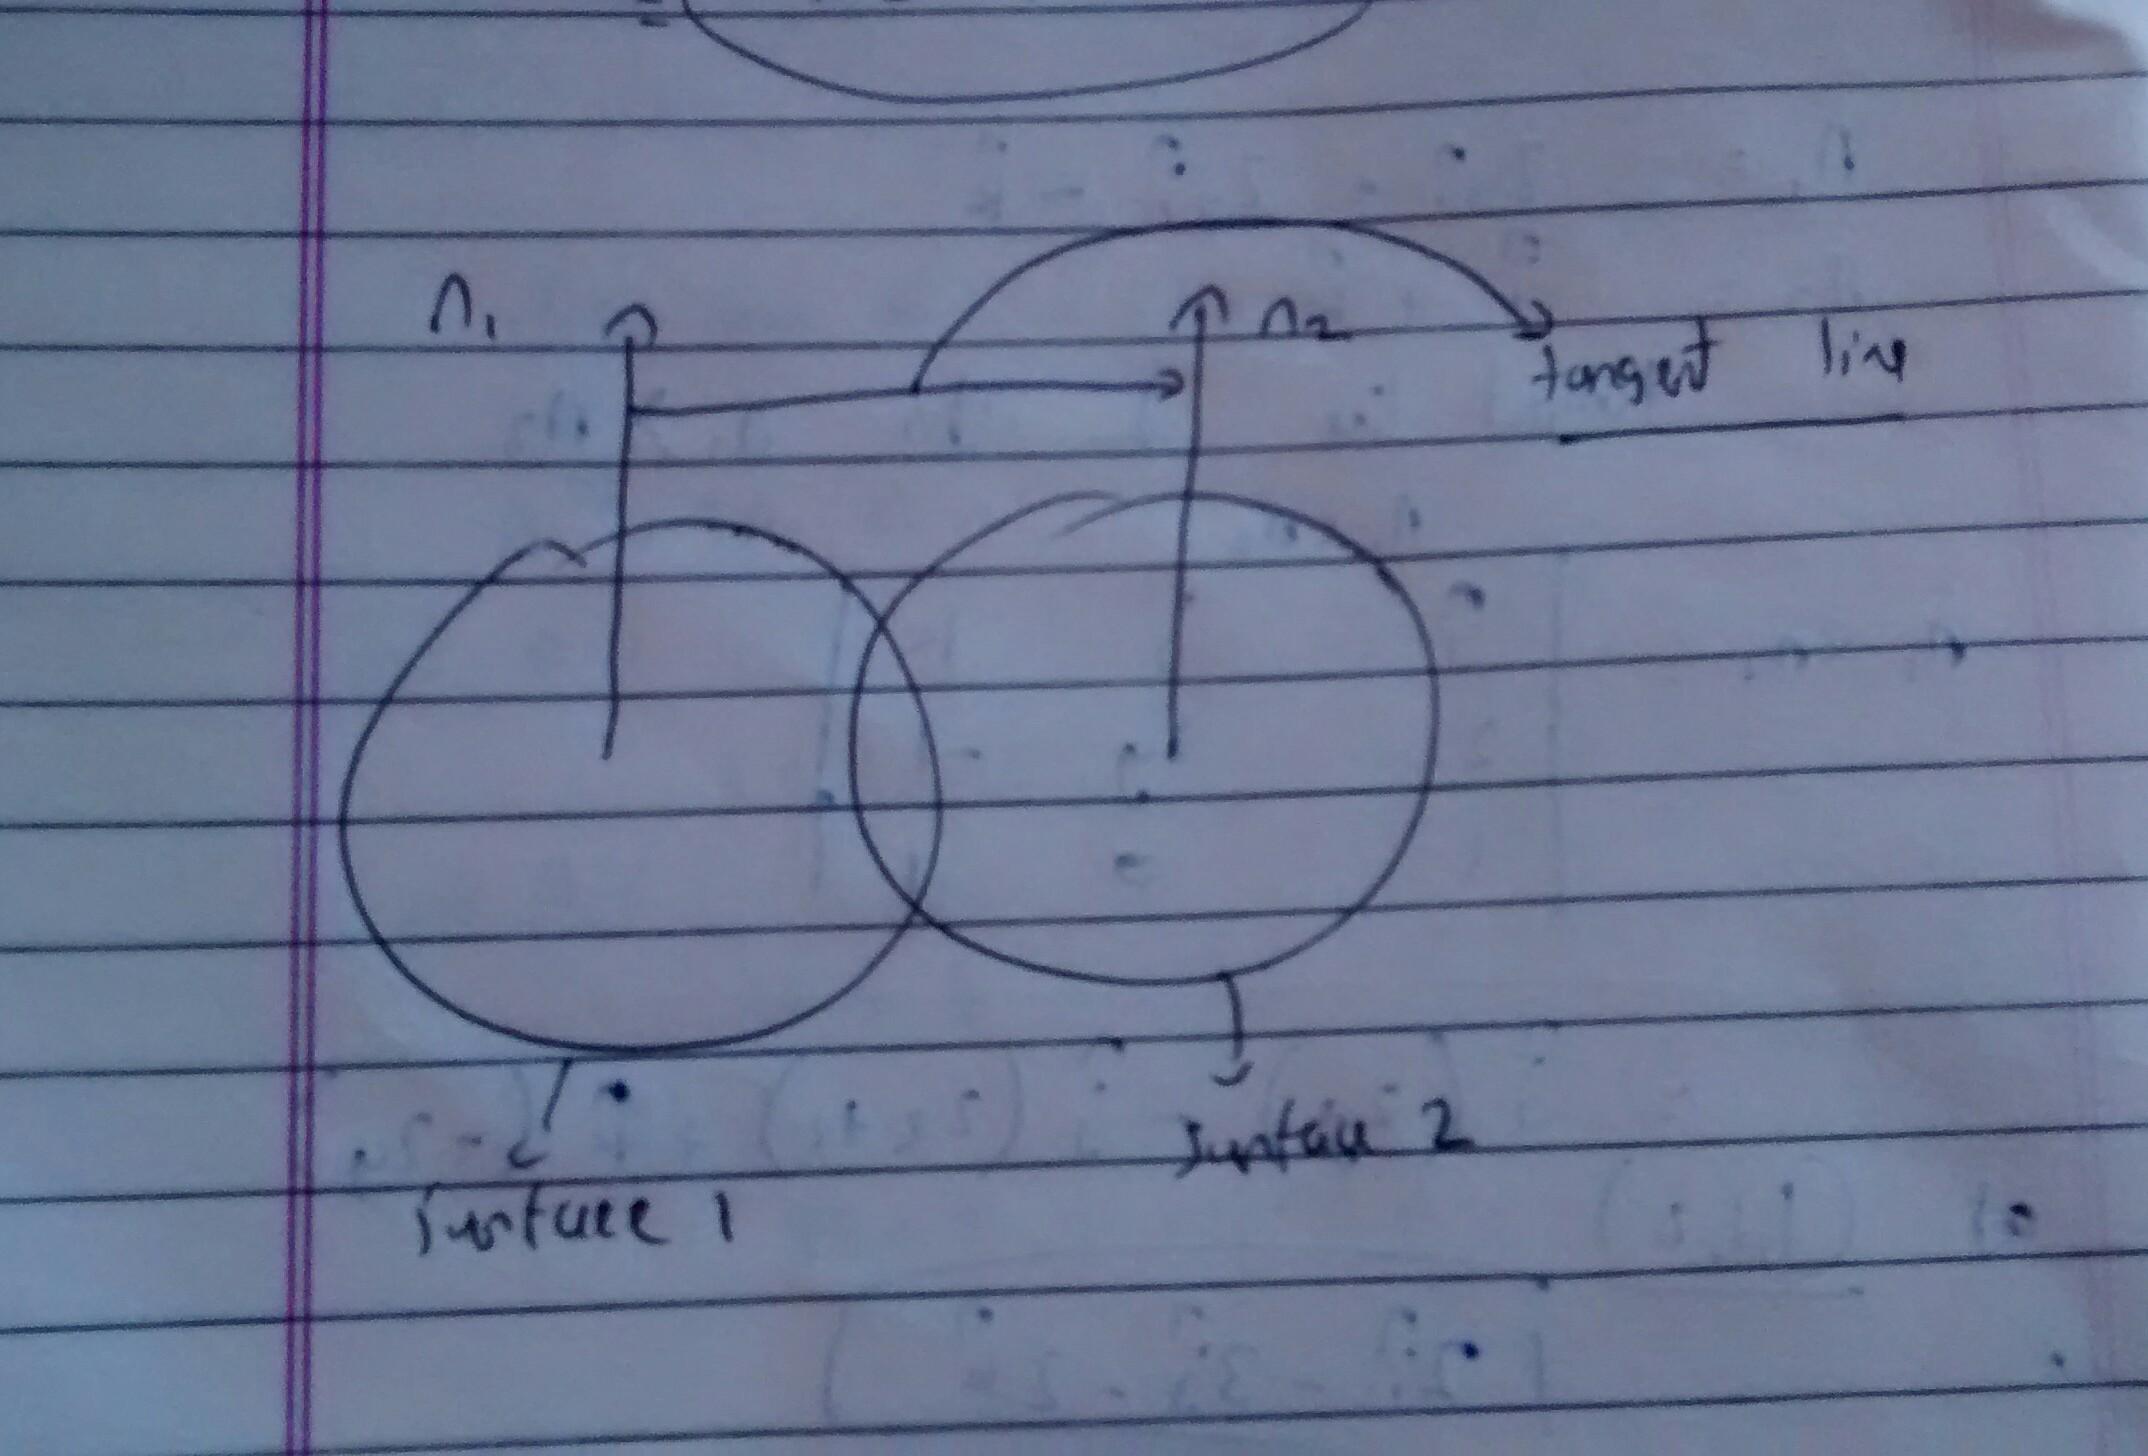 n₁
n₂
tangent line
Surface 2
Surface 1